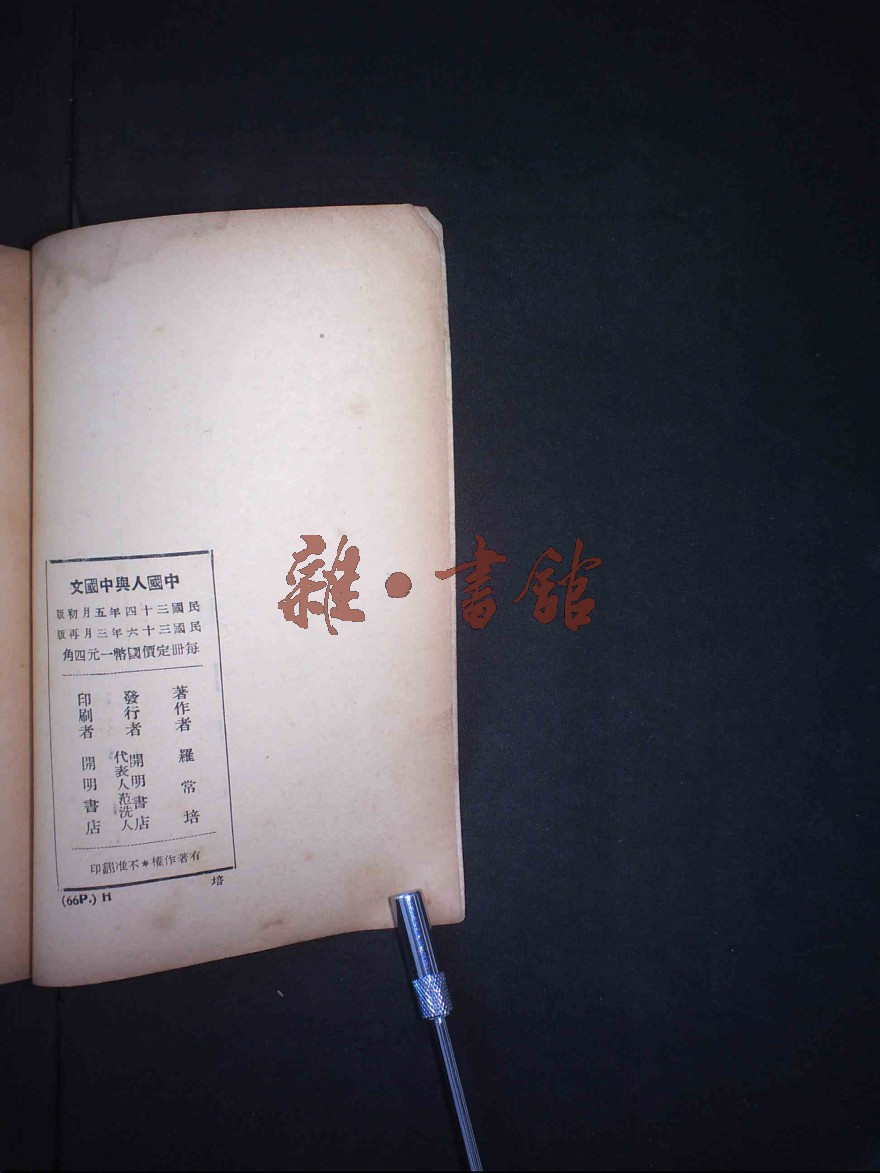 中國人與中國文
民國三十四年五月初版
民國三十六年三月再版
每冊定價國幣一元四角
著作者 羅常培
發行者 開明書店
代表人范洗人
印刷者 開明書店
有著作權*不准翻印
培
(66P.) H
雜·書館